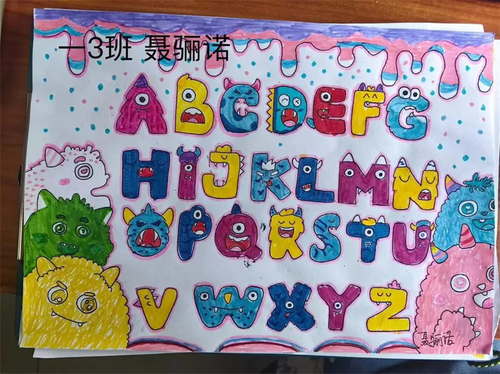 一3班 聂骊诺
ABCDEFG
HIJKLMN
OPQRSTU
VWXYZ
聂骊诺